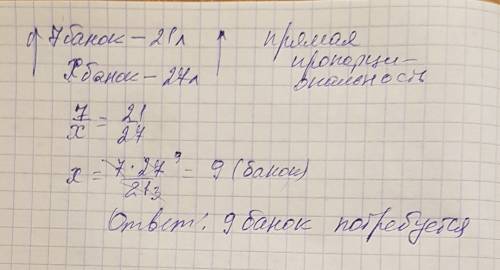 7 банок - 21 л прямая
x банок - 27 л пропорци-
ональность
7/x = 21/27
x = 7 · 27 9 / 21 3 = 9 (банок)
Ответ: 9 банок потребуется